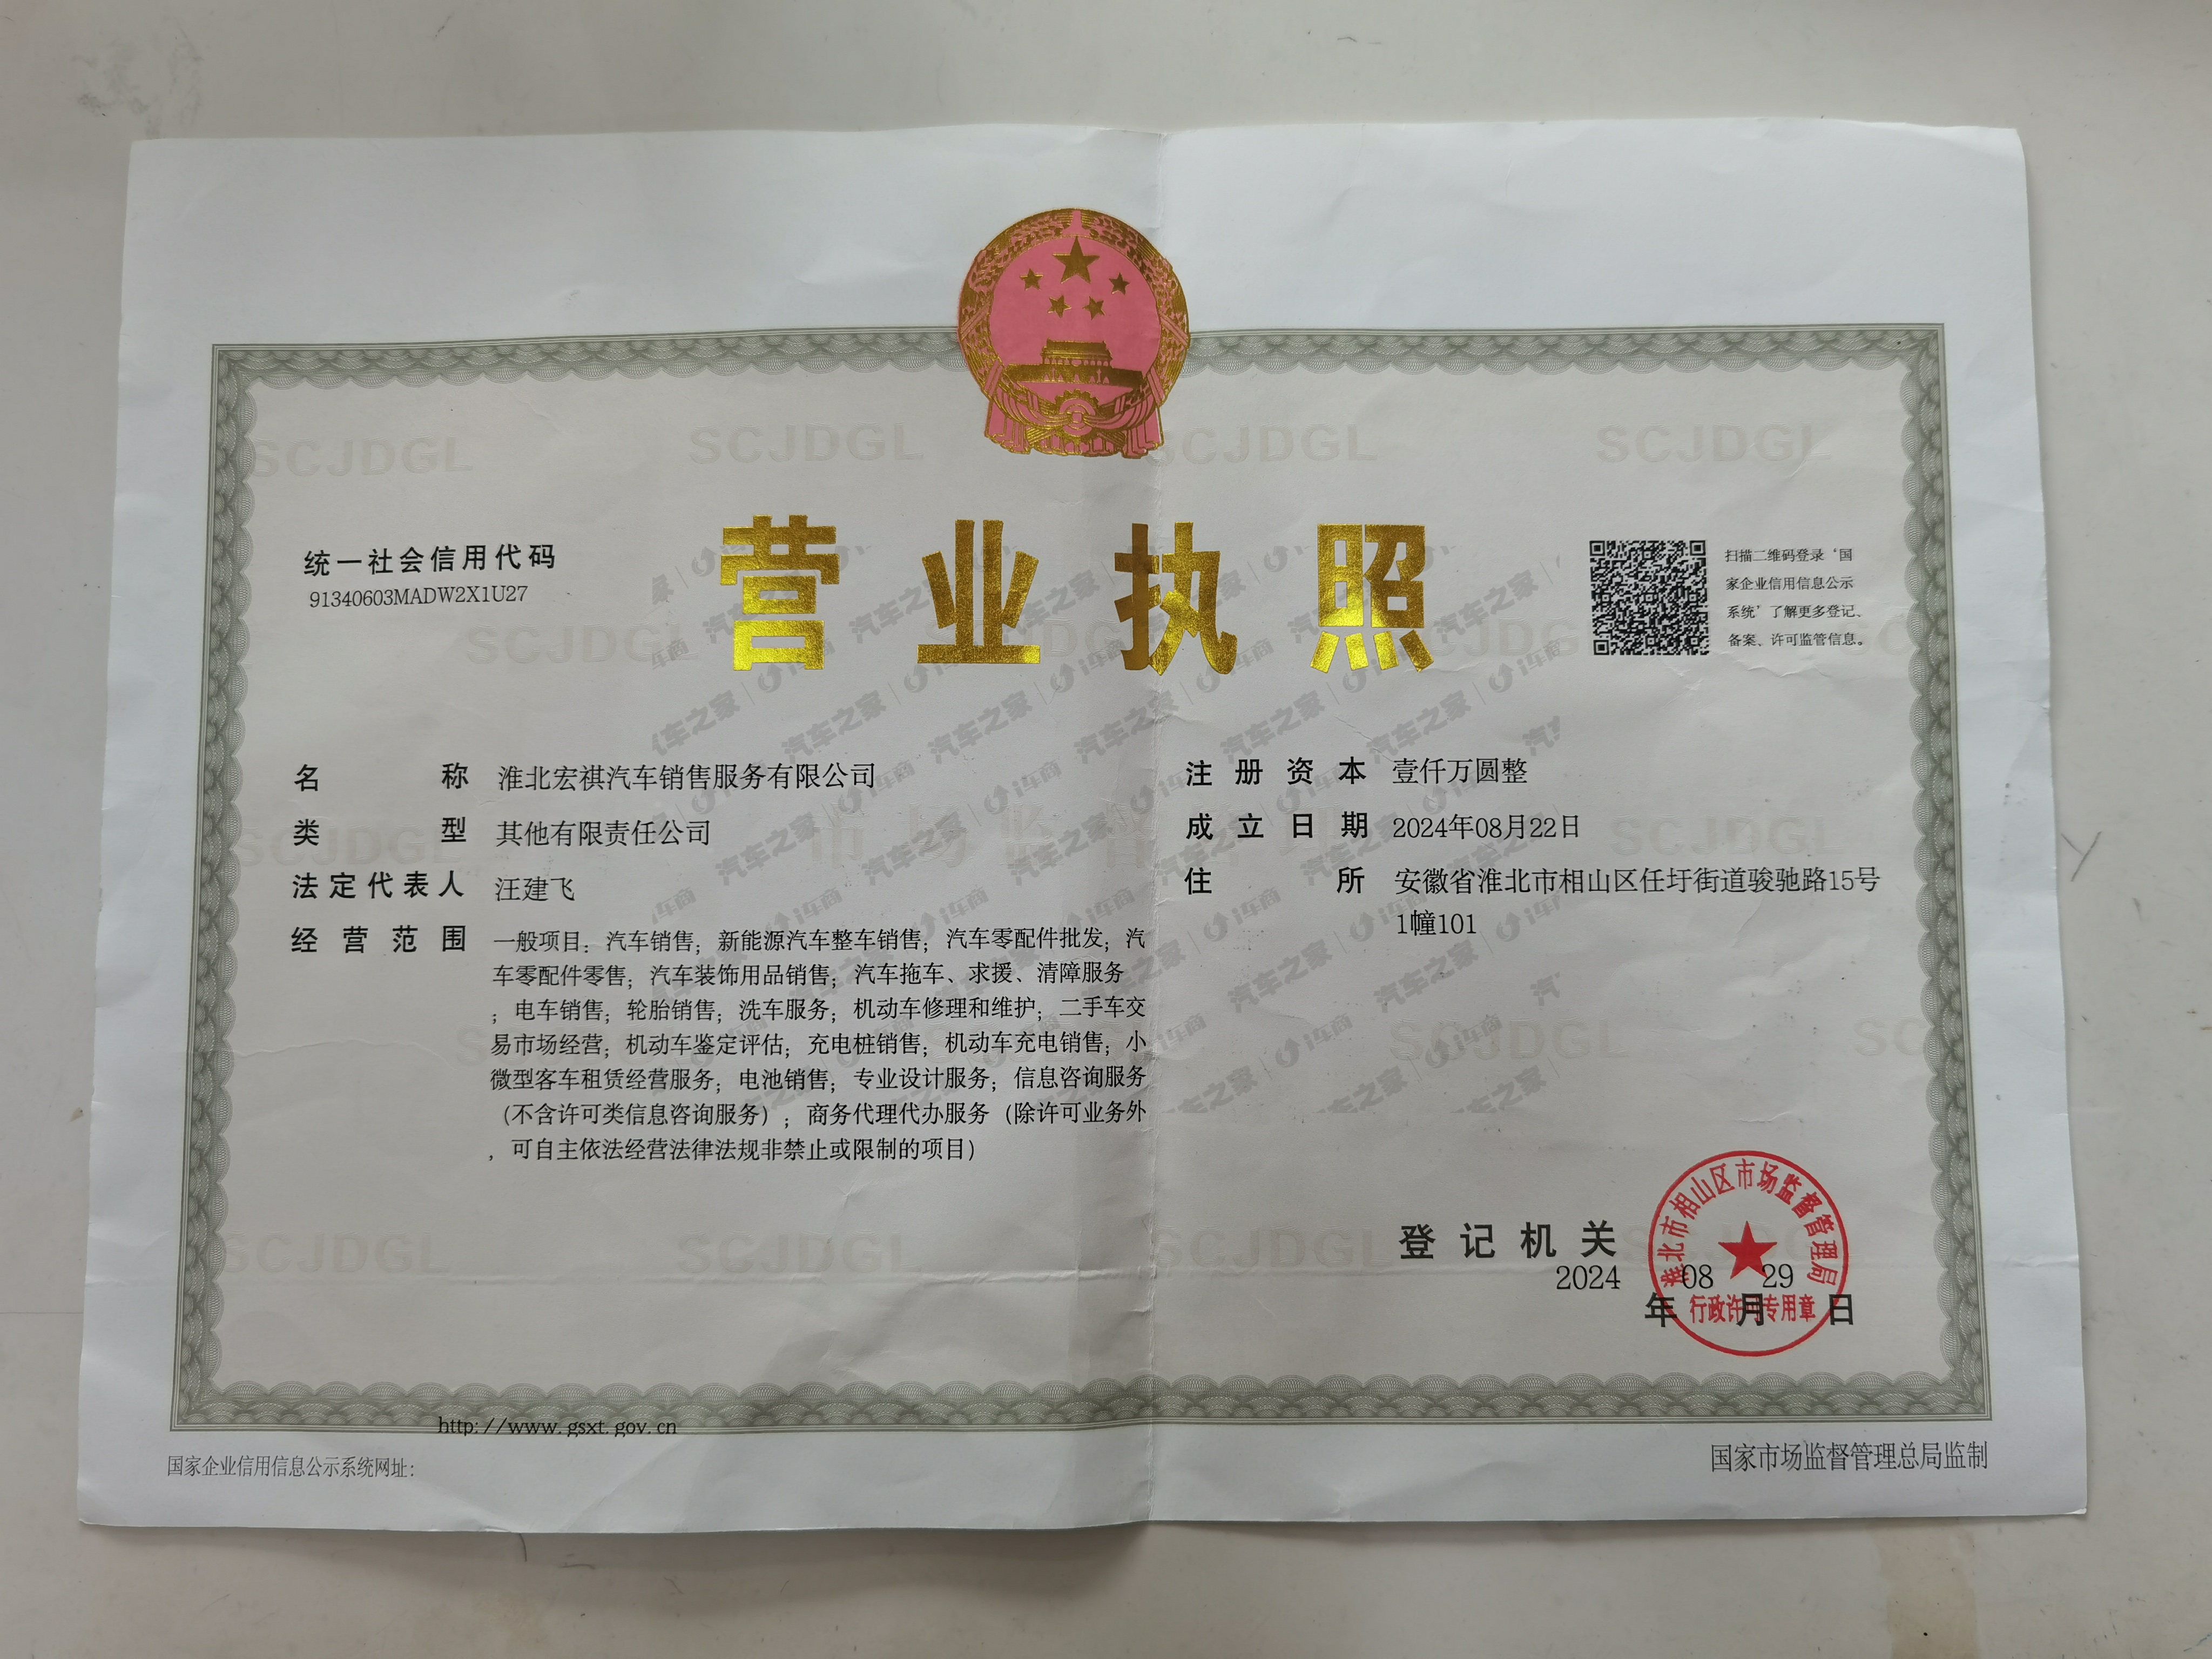 营业执照
统一社会信用代码
91340603MADW2X1U27
扫描二维码登录‘国
家企业信用信息公示
系统’了解更多登记、
备案、许可监管信息。
名称 淮北宏祺汽车销售服务有限公司
类型 其他有限责任公司
法定代表人 汪建飞
经营范围 一般项目：汽车销售；新能源汽车整车销售；汽车零配件批发；汽
车零配件零售；汽车装饰用品销售；汽车拖车、求援、清障服务
；电车销售；轮胎销售；洗车服务；机动车修理和维护；二手车交
易市场经营；机动车鉴定评估；充电桩销售；机动车充电销售；小
微型客车租赁经营服务；电池销售；专业设计服务；信息咨询服务
（不含许可类信息咨询服务）；商务代理代办服务（除许可业务外
，可自主依法经营法律法规非禁止或限制的项目）
注册资本 壹仟万圆整
成立日期 2024年08月22日
住所 安徽省淮北市相山区任圩街道骏驰路15号
1幢101
登记机关
2024 08 29
年 月 日
淮北市相山区市场监督管理局
行政许可专用章
http://www.gsxt.gov.cn
国家企业信用信息公示系统网址：
国家市场监督管理总局监制
SCJDGL
汽车之家
i车商